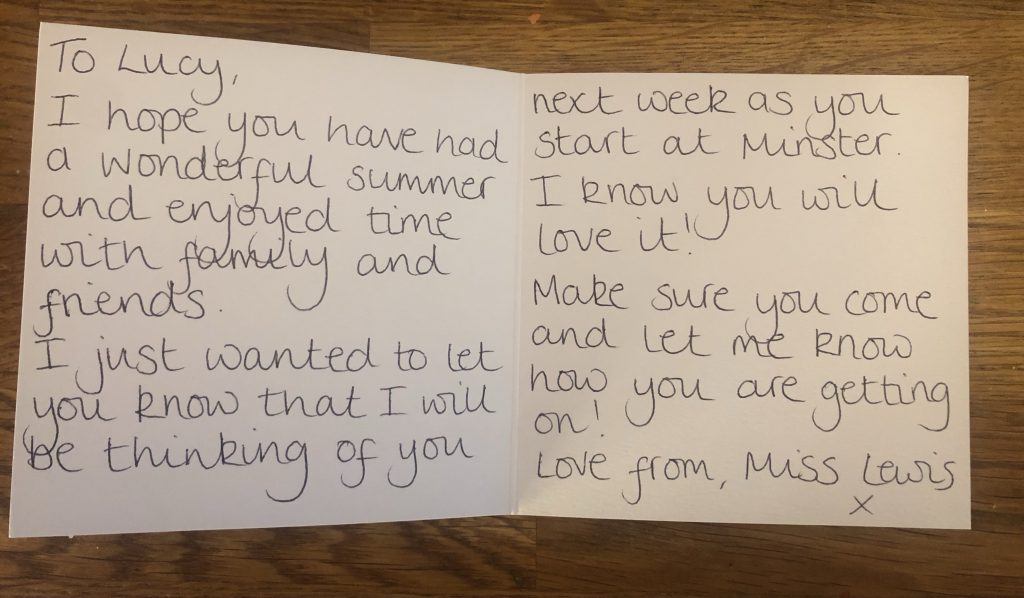 To Lucy,
I hope you have had
a wonderful summer
and enjoyed time
with family and
friends.
I just wanted to let
you know that I will
be thinking of you
next week as you
start at Minster.
I know you will
love it!
Make sure you come
and let me know
how you are getting
on!
Love from, Miss Lewis
x